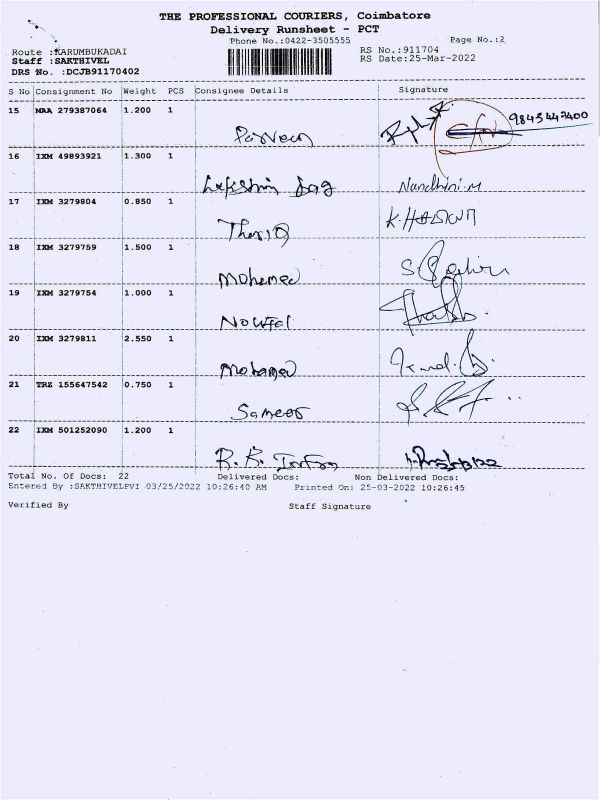 THE PROFESSIONAL COURIERS, Coimbatore
Delivery Runsheet - PCT
Phone No.:0422-3505555 Page No.:2
Route :KARUMBUKADAI RS No.:911704
Staff :SAKTHIVEL RS Date:25-Mar-2022
DRS No. :DCJB91170402
S No Consignment No Weight PCS Consignee Details Signature
15 MAA 279387064 1.200 1 9843447400
Parveen
16 IXM 49893921 1.300 1
Nandhini.M
17 IXM 3279804 0.850 1
Thariq
18 IXM 3279759 1.500 1
Mohamed
19 IXM 3279754 1.000 1
Noufal
20 IXM 3279811 2.550 1
Mohamed
21 TRZ 155647542 0.750 1
Sameer
22 IXM 501252090 1.200 1
Total No. Of Docs: 22 Delivered Docs: Non Delivered Docs:
Entered By :SAKTHIVELPVI 03/25/2022 10:26:40 AM Printed On: 25-03-2022 10:26:45
Verified By Staff Signature